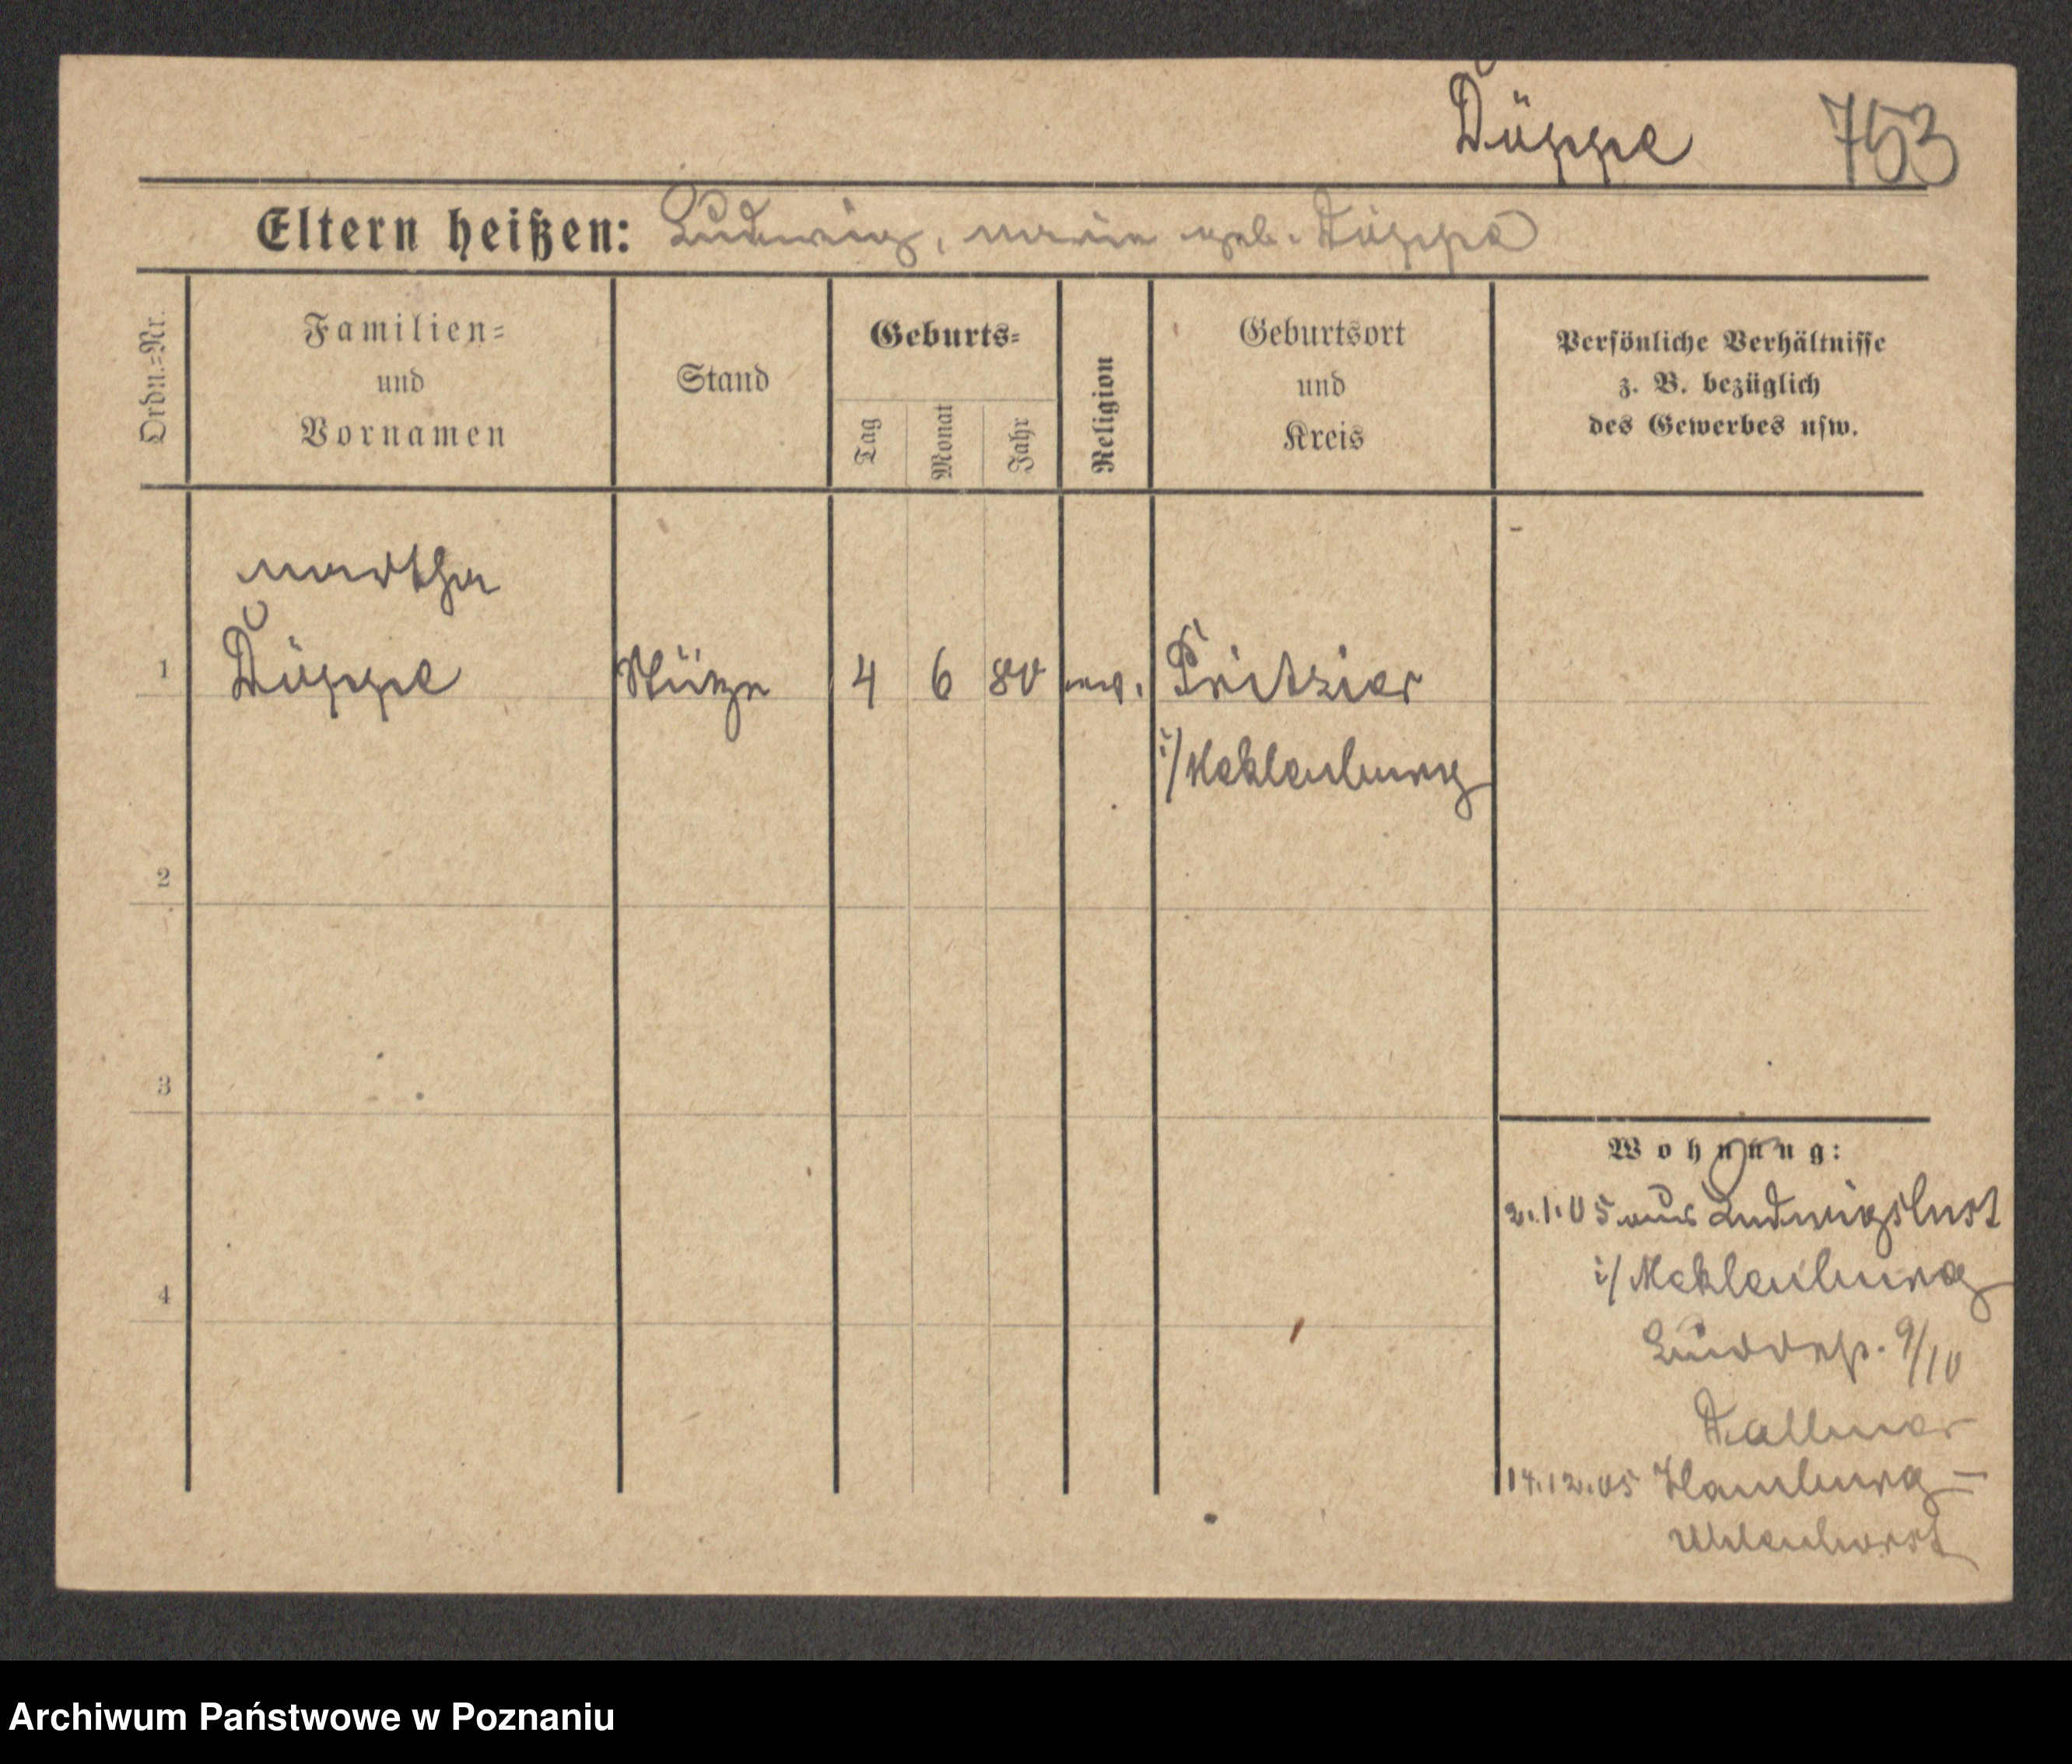 Düppe 753
Eltern heißen: Ludwig, Marie geb. Düppe
Ordn.=Nr.
Familien=
und
Vornamen
Stand
Geburts=
Tag
Monat
Jahr
Religion
Geburtsort
und
Kreis
Persönliche Verhältnisse
z. B. bezüglich
des Gewerbes usw.
Martha
1 Düppe Stütze 4 6 80 ev. Pritzier
i/Meklenburg
2
3
4
Wohnung:
2.1.05 aus Ludwigslust
i/Meklenburg
9/10
Dallmer
14.12.05 Hamburg-
Uhlenhorst
Archiwum Państwowe w Poznaniu